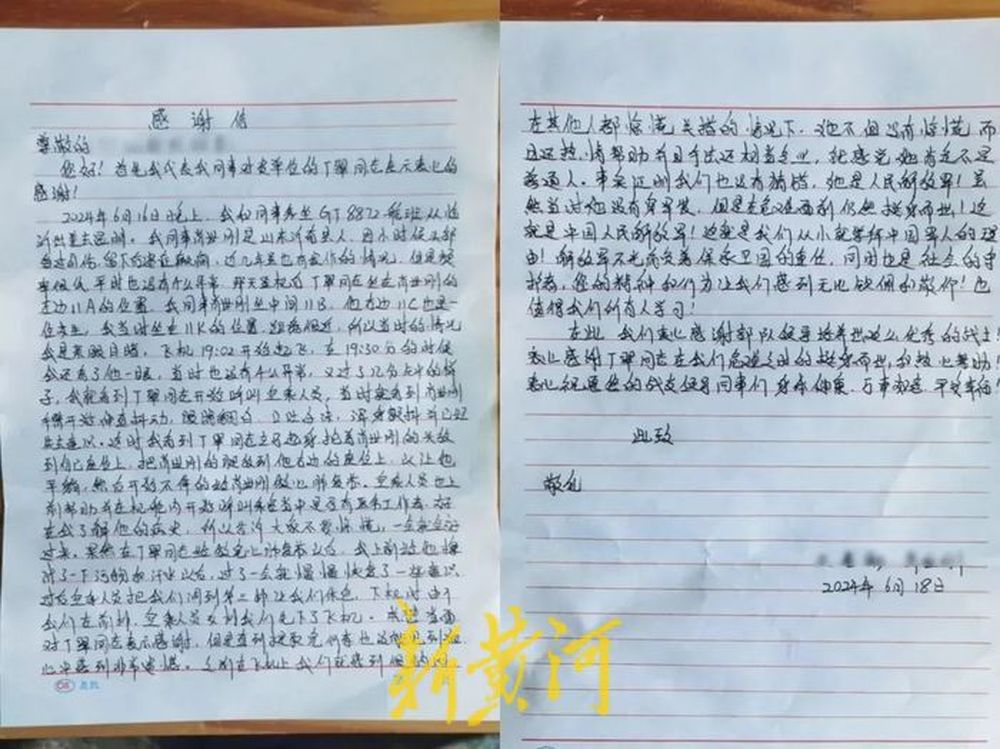 感谢信
尊敬的
您好！首先我代表我同事对贵单位的丁翠同志表示衷心的
感谢！
2024年6月16日晚上，我和同事乘坐GT8872航班从临
沂出差去温州。我同事商业刚是山东沂南县人，因小时候头部
受过外伤，留下后遗症癫痫，近几年虽也有发作的情况，但是频
率很低，平时也没有什么异常。那天登机后丁翠同志坐在商业刚的
左边11A的位置，我同事商业刚坐中间11B，他右边11C也是一
位女士，我当时坐在11K的位置，距离很近，所以当时的情况
我是亲眼目睹。飞机19:02开始起飞，在19:30分的时候
我还看了他一眼，当时也没有什么异常，又过了几分钟的样
子，我就看到丁翠同志开始呼叫空乘人员，当时就看到商业刚
开始抖动，眼睛翻白，口吐白沫，浑身颤抖并已经
失去意识。这时我看到丁翠同志立马起身，抱着商业刚的头放
到自己座位上，把商业刚的腿放到他右边的座位上，以让他
平躺，然后开始不停的给商业刚做心肺复苏。空乘人员也上
前帮助并在机舱内开始呼叫乘客当中是否有医务工作者，好
在我了解他的病史，所以告诉大家不要惊慌，一会就会好
过来。果然在丁翠同志给做完心肺复苏以后，我上前给他擦
了一下污物和汗水以后，过了一会就慢慢恢复了一些意识
过后空乘人员把我们调到第二排让我们休息，下机时由于
我们在前排，空乘人员安排我们先下了飞机。我想当面
对丁翠同志表示感谢，但是直到提取完行李也没能见到她
心中感到非常遗憾。之前在飞机上我们就感到很纳闷
在其他人都惊慌失措的情况下，她不但没有惊慌而
且还热情帮助并且手法还相当专业，就感觉她肯定不是
普通人。事实证明我们也没有猜错，她是人民解放军！虽
然当时她没有穿军装，但是在危难面前仍然挺身而出！这
就是中国人民解放军！这就是我们从小就崇拜中国军人的理
由！解放军不光肩负着保家卫国的重任，同时也是社会的守
护者，您的精神和行为让我们感到无比钦佩和敬仰！也
值得我们所有人学习！
在此，我们衷心感谢部队领导培养出这么优秀的战士！
衷心感谢丁翠同志在我们危难之时的挺身而出，和热心帮助！
衷心祝愿您的战友领导同事们身体健康、万事如意、平安幸福！
此致
敬礼
2024年6月18日
新黄河